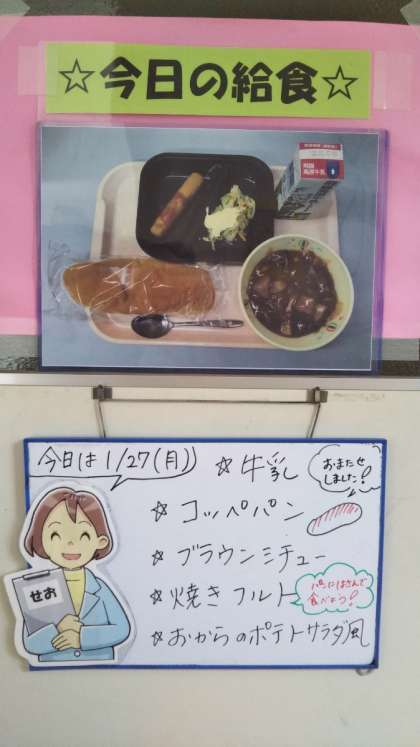 ☆今日の給食☆
今日は1/27(月)
☆牛乳
おまたせ
しました!
☆コッペパン
☆ブラウンシチュー
☆焼きフルト
パンにはさんで
食べよう!
☆おからのポテトサラダ風
せお